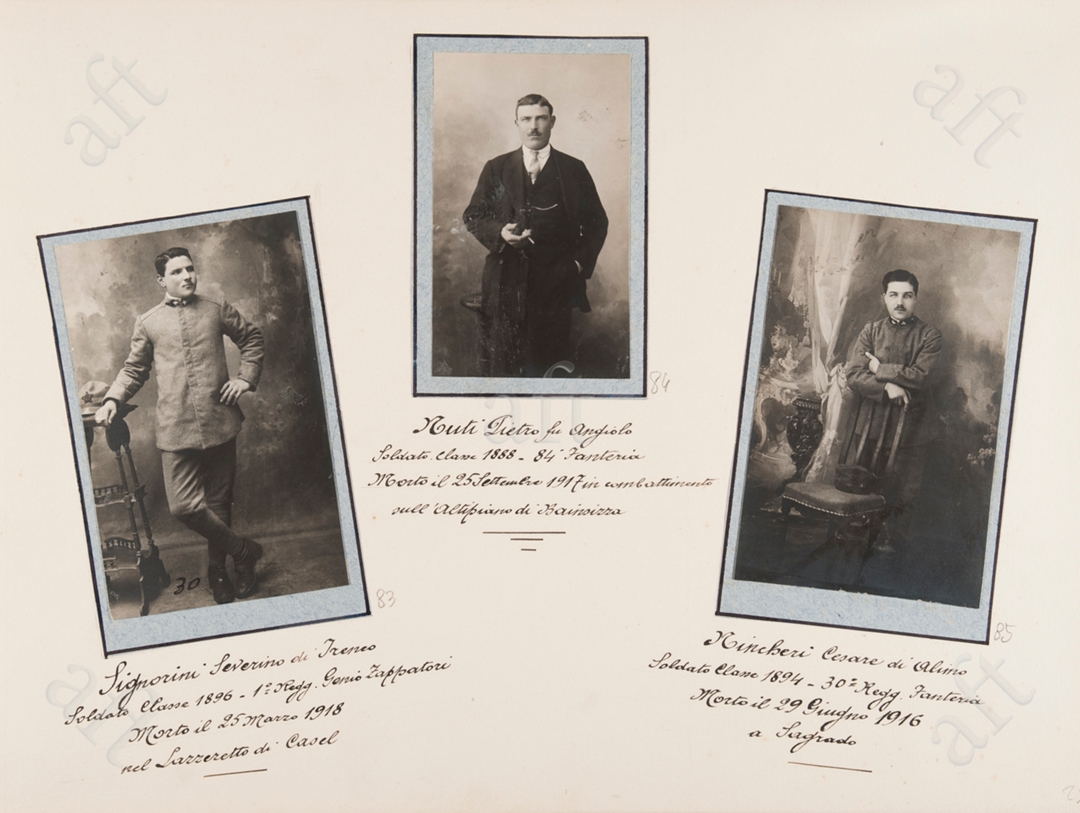 aft
aft
84
Nuti Pietro fu Angiolo
Soldato. Classe 1888 - 84° Fanteria
Morto il 25 Settembre 1917 in combattimento
sull'Altipiano di Bainsizza
aft
30
83
Signorini Severino di Ireneo
Soldato Classe 1896 - 1° Regg. Genio Zappatori
Morto il 25 Marzo 1918
nel Lazzeretto di Casel
aft
85
Nincheri Cesare di Alimo
Soldato Classe 1894 - 30° Regg. Fanteria
Morto il 29 Giugno 1916
a Sagrado
aft